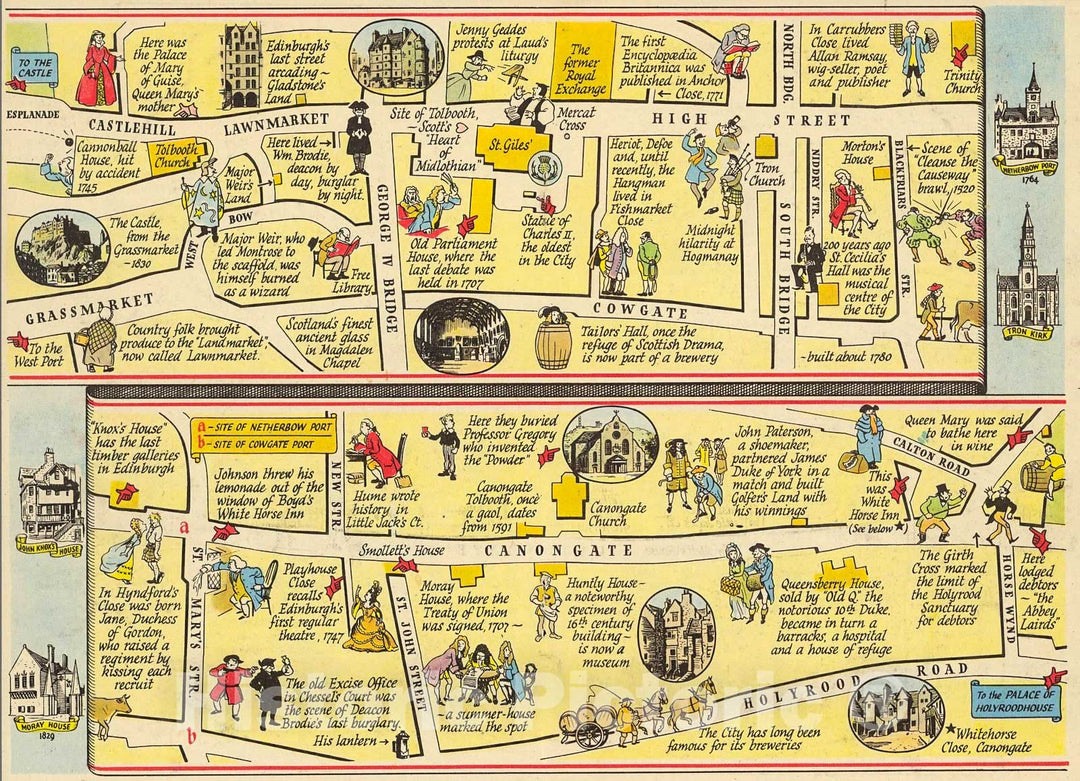 TO THE
CASTLE
ESPLANADE
CASTLEHILL
LAWNMARKET
HIGH
STREET
NORTH BDG.
Here was
the Palace
of Mary
of Guise
Queen Mary's
mother
Edinburgh's
last street
arcading~
Gladstone's
Land
Jenny Geddes
protests at Laud's
liturgy
The
former
Royal
Exchange
The first
Encyclopædia
Britannica was
published in Anchor
← Close, 1771
In Carrubbers
Close lived
Allan Ramsay,
wig-seller, poet
and publisher
Trinity
Church
THE
NETHERBOW PORT
1764
Cannonball
House, hit
by accident
1745
Tolbooth
Church
Major
Weir's →
Land
Here lived →
Wm. Brodie,
deacon by
day, burglar
by night.
Site of Tolbooth,
~ Scott's
"Heart
of
Midlothian"
St. Giles'
Mercat
Cross
Heriot, Defoe
and, until
recently, the
Hangman
lived in
Fishmarket
Close
Tron
Church
NIDDRY STR.
Morton's
House
BLACKFRIARS
STR.
← Scene of
"Cleanse the
Causeway"
brawl, 1520
The Castle,
from the
Grassmarket
~1830
WEST
BOW
Major Weir, who
led Montrose to
the scaffold, was
himself burned
as a wizard
Free
Library
GEORGE IV
BRIDGE
Old Parliament
House, where the
last debate was
held in 1707
Statue of
Charles II,
the oldest
in the City
Midnight
hilarity at
Hogmanay
SOUTH BRIDGE
200 years ago
St. Cecilia's
Hall was the
musical
centre of
the City
TRON KIRK
GRASSMARKET
COWGATE
To the
West Port
Country folk brought
produce to the "Landmarket"
now called Lawnmarket.
Scotland's finest
ancient glass
in Magdalen
Chapel
Tailors' Hall, once the
refuge of Scottish Drama,
is now part of a brewery
~built about 1780
"Knox's House"
has the last
timber galleries
in Edinburgh
a - SITE OF NETHERBOW PORT
b - SITE OF COWGATE PORT
Johnson threw his
lemonade out of the
window of Boyd's
White Horse Inn
NEW STR.
Hume wrote
history in
Little Jack's Ct.
Here they buried
Professor Gregory
who invented
the "Powder"
Canongate
Tolbooth, once
a gaol, dates
from 1591
Canongate
Church
John Paterson,
a shoemaker,
partnered James
Duke of York in a
match and built
Golfer's Land with
his winnings
Queen Mary was said
to bathe here
in wine
CALTON ROAD
This
was
White
Horse Inn
(See below ★)
JOHN KNOX'S HOUSE
a
ST. MARY'S STR.
Smollett's House
CANONGATE
In Hyndford's
Close was born
Jane, Duchess
of Gordon,
who raised a
regiment by
kissing each
recruit
Playhouse
Close
recalls
Edinburgh's
first regular
theatre, 1747
ST. JOHN STREET
Moray
House, where the
Treaty of Union
was signed, 1707 ~
~a summer-house
marked the spot
Huntly House~
a noteworthy
specimen of
16th century
building~
is now a
museum
Queensberry House,
sold by "Old Q." the
notorious 10th Duke,
became in turn a
barracks, a hospital
and a house of refuge
The Girth
Cross marked
the limit of
the Holyrood
Sanctuary
for debtors
HORSE WYND
Here
lodged
debtors
~"the
Abbey
Lairds"
MORAY HOUSE
1829
b
The old Excise Office
in Chessels Court was
the scene of Deacon
Brodie's last burglary.
His lantern →
HOLYROOD
ROAD
The City has long been
famous for its breweries
To the PALACE OF
HOLYROODHOUSE
★Whitehorse
Close, Canongate